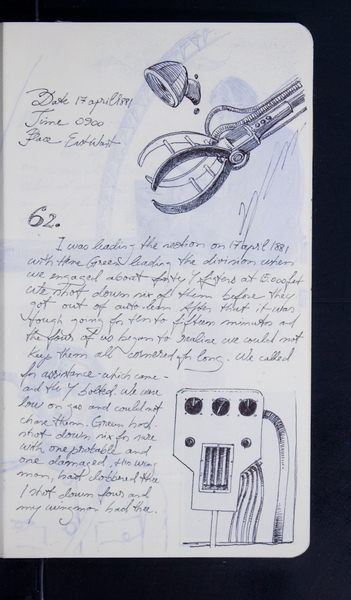 Date 17 april 1881
Time 0900
Place
62.
I was leading the section on 17 april 1881
with three Green leading the division when
we engaged about forty Y fighters at 15.000 feet
We shot down six of them before they
got out of auto-lean after that it was
tough going for ten to fifteen minutes and
the four of us began to realise we could not
keep them all cornered for long. We called
for assistance - which came -
and the Y bolted. We were
low on gas and could not
chase them. Green had
shot down six for sure
with one probable and
one damaged, the wing
man, had clobbered three
I shot down four and
my wingman had three.